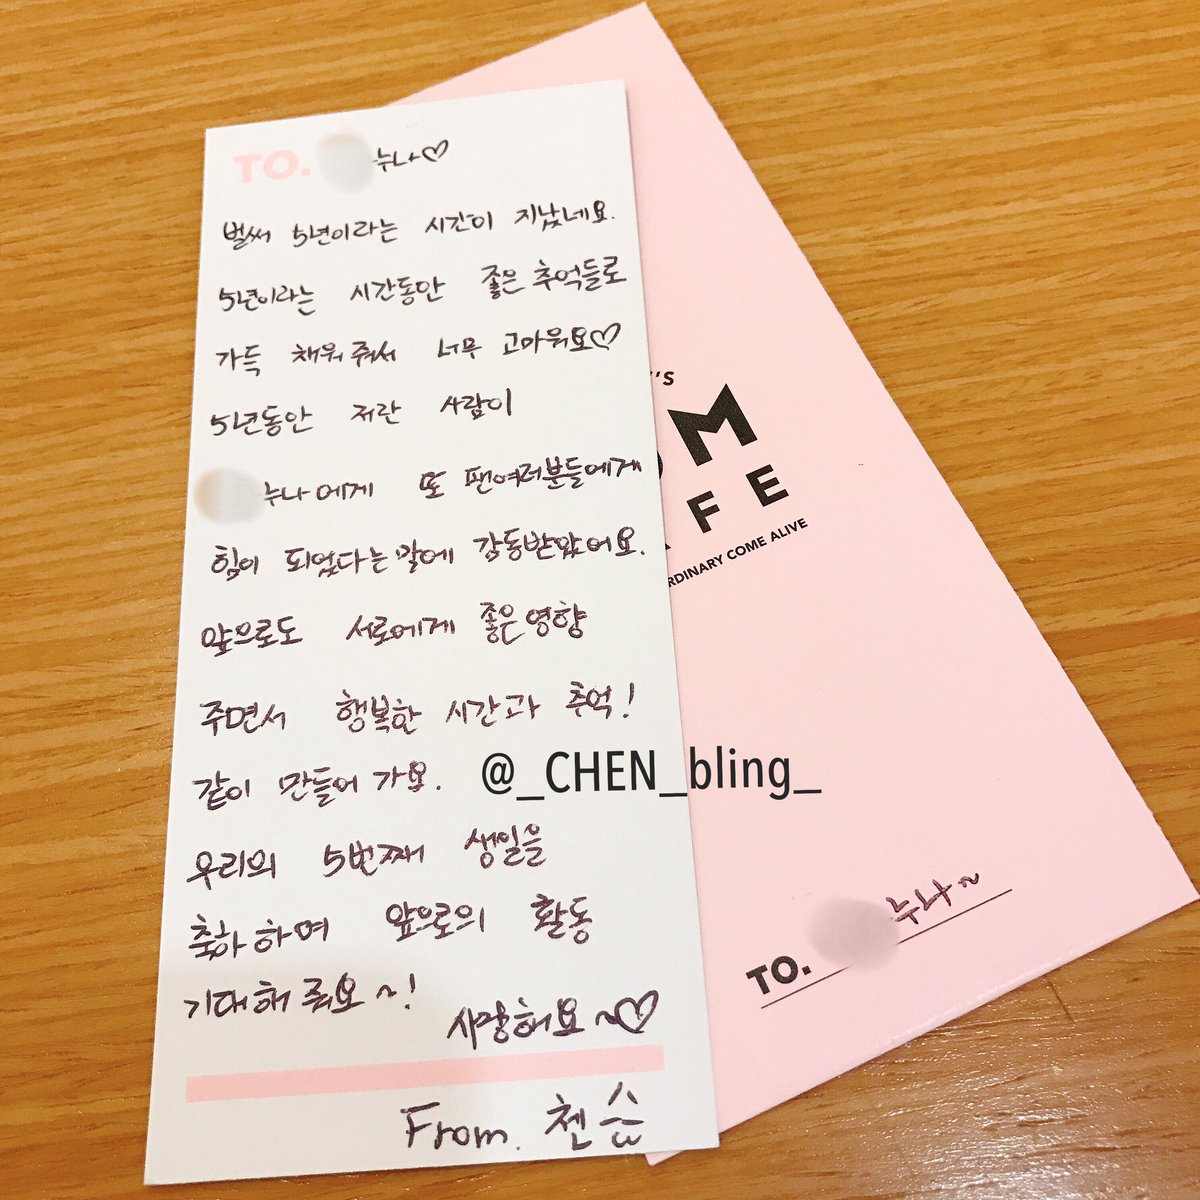 TO. 누나♡
벌써 5년이라는 시간이 지났네요.
5년이라는 시간동안 좋은 추억들로
가득 채워줘서 너무 고마워요♡
5년동안 저란 사람이
누나에게 또 팬여러분들에게
힘이 되었다는 말에 감동받았어요.
앞으로도 서로에게 좋은영향
주면서 행복한 시간과 추억!
같이 만들어 가요.
우리의 5번째 생일을
축하하며 앞으로의 활동
기대해줘요~!
사랑해요~♡
From. 첸슙
@_CHEN_bling_
'S
OM
AFE
RDINARY COME ALIVE
TO. 누나~